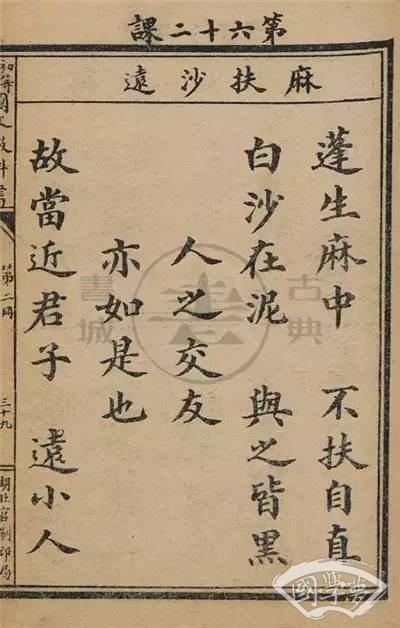 第六十二課
麻扶沙遠
蓬生麻中　不扶自真
白沙在泥　與之皆黑
人之交友
亦如是也
故當近君子　遠小人
初等國文教科書
第二冊
三十九
湖北官刷印局
古典書城
國學夢